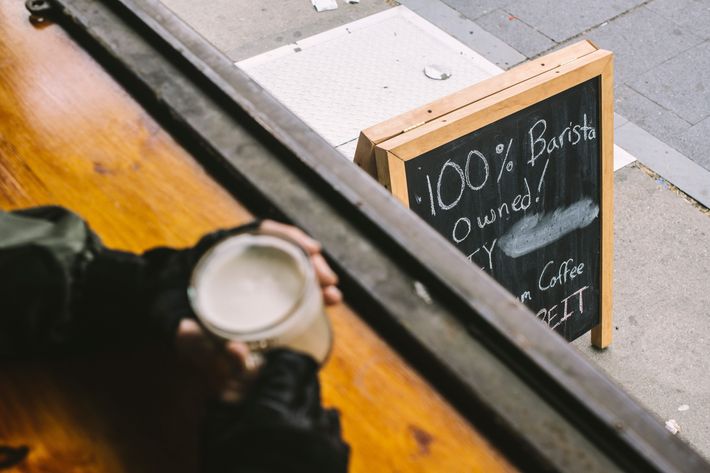 100% Barista
Owned!
TY
m Coffee
BEIT